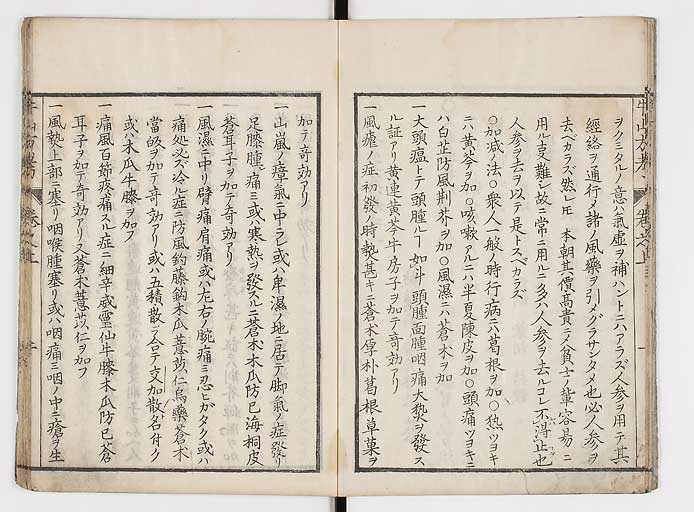 ヲクミタルノ意ハ氣虛ヲ補ハントニハアラズ人参ヲ用テ其
経絡ヲ通行メ諸ノ風藥ヲ引メグラサンタメ也必人参ヲ
去ベカラズ然レ𪜈本朝其價髙貴ニメ貧士ノ輩容易ニ
用ル叓難シ故ニ常ニ用ルニ多ハ人参ヲ去ルコレ不得止也
人参ヲ去ヲ以テ是トスベカラズ
○加减ノ法○衆人一般ノ時行病ニハ葛根ヲ加○热ツヨキ
ニハ黄芩ヲ加○咳嗽アルニハ半夏陳皮ヲ加○頭痛ツヨキニ
ハ白芷防風荆芥ヲ加○風濕ニハ蒼术ヲ加
一大頭瘟トテ頭腫ルヿ如斗頭腫面腫咽痛大热ヲ發ス
ル証アリ黄連黄芩牛房子ヲ加テ奇効アリ
一風瘧ノ症初發ノ時熱甚キニ蒼术厚朴葛根草菓ヲ
加テ奇効アリ
一山嵐ノ瘴氣ニ中ラレ或ハ卑濕ノ地ニ居テ脚氣ノ症發リ
足膝腫痛ミ或ハ寒熱ヲ發スルニ蒼术木瓜防已海桐皮
蒼耳子ヲ加テ奇効アリ
一風濕ニ中リ臂痛肩痛或ハ左右ノ腕痛ミ忍ヒガタク或ハ
痛処必ズ冷ル症ニ防風釣藤鈎木瓜薏苡仁烏藥蒼术
當皈ヲ加テ奇効アリ或ハ五積散ヲ合テ交加散ト名付ク
或ハ木瓜牛膝ヲ加フ
一痛風百節疼痛スル症ニ細辛威靈仙牛膝木瓜防已蒼
耳子ヲ加テ奇効アリ又蒼术薏苡仁ヲ加フ
一風熱上部ニ塞リ咽喉腫塞リ或ハ咽痛ミ咽ノ中ニ瘡ヲ生